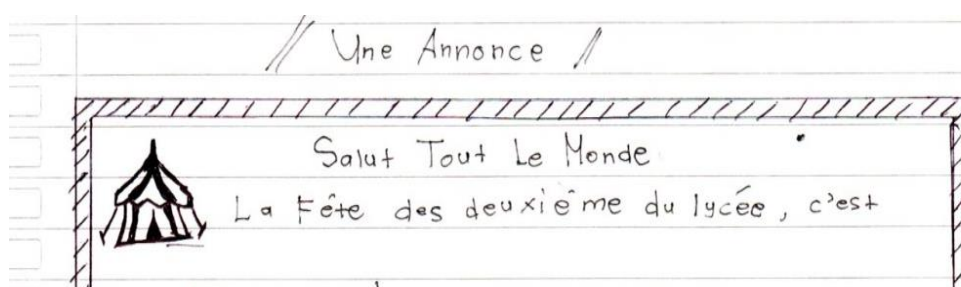 // Une Annonce //
Salut Tout Le Monde
La Fête des deuxiême du lycée, c'est